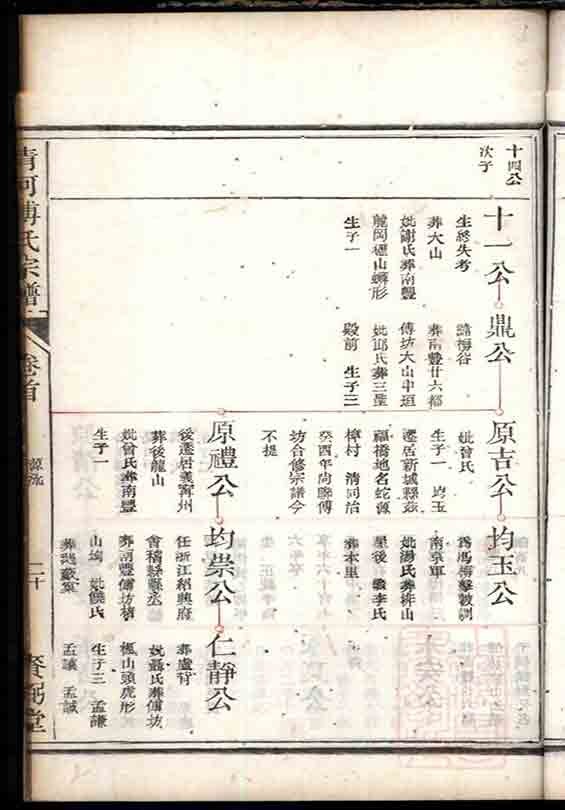 十四公
次子
十一公
生終失考
葬大山
妣謝氏葬南豐
龍岡
山螄形
生子一
鼎公
號梅谷
葬南豐廿六都
傅坊大山中垣
妣邱氏葬三星
殿前 生子三
原吉公
妣曾氏
生子一 均玉
遷居新城縣
福橋地名蛇源
樟村 清同治
癸酉年尚聯傅
坊合修宗譜今
不提
均玉公
南京軍
妣湯氏葬排山
星後 繼李氏
葬本里
原禮公
後遷居義寧州
葬後龍山
妣曾氏葬南豐
生子一
均崇公
任浙江紹興府
會稽縣縣丞
葬南豐傅坊
山塆 妣饒氏
仁靜公
葬盧背
妣聶氏葬傅坊
山頭虎形
生子三 孟謙
孟誠
清河傅氏宗譜
卷首
源流
二十
賚弼堂